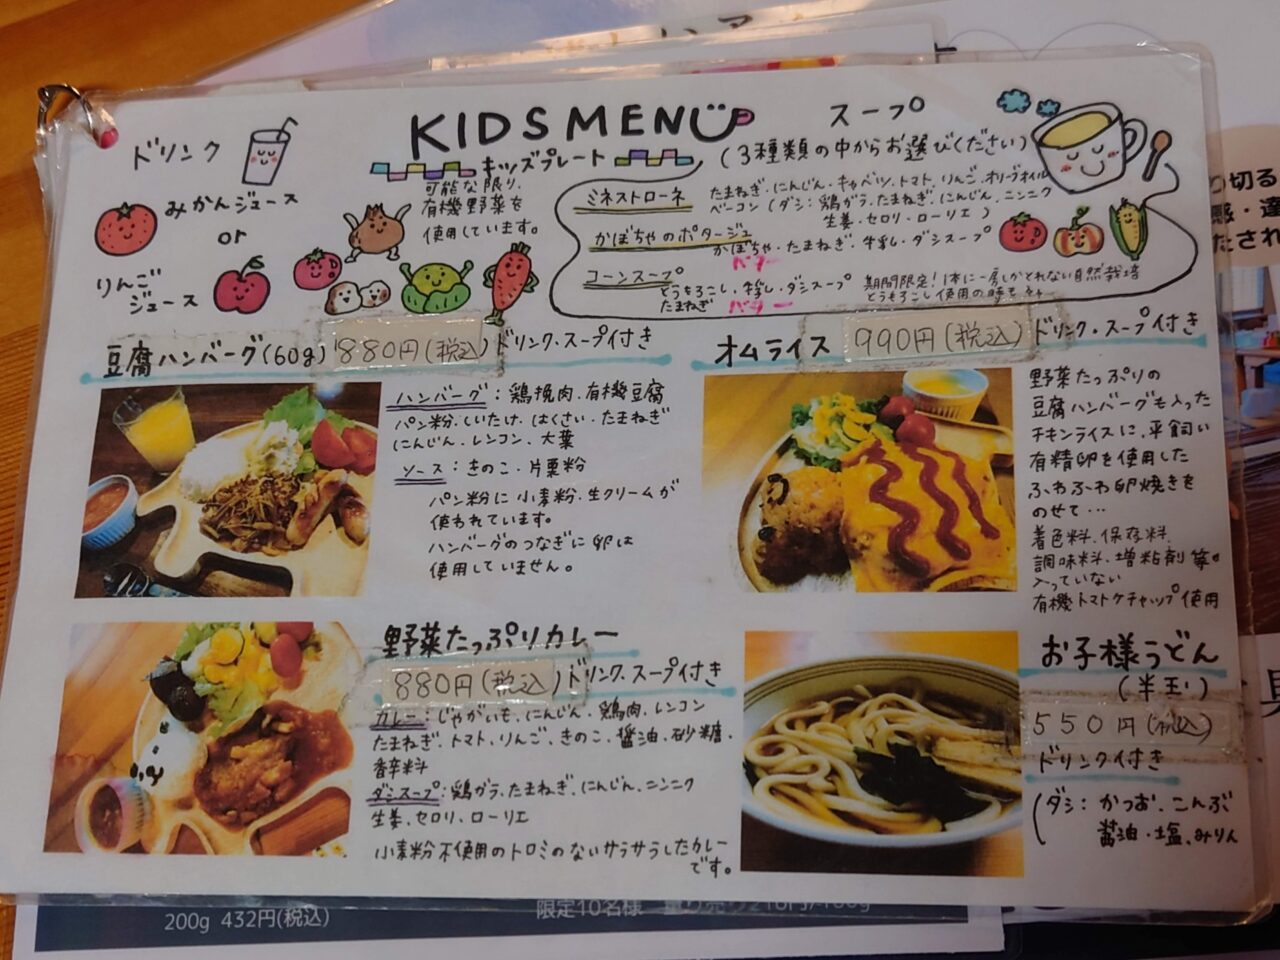 KIDS MENU
キッズプレート
ドリンク
みかんジュース
or
りんご
ジュース
可能な限り、
有機野菜を
使用しています。
スープ
(3種類の中からお選びください)
ミネストローネ たまねぎ・にんじん・キャベツ・トマト・りんご・オリーブオイル
ベーコン(ダシ:鶏ガラ・たまねぎ・にんじん・ニンニク
生姜・セロリ・ローリエ)
かぼちゃのポタージュ
かぼちゃ・たまねぎ・牛乳・ダシスープ
バター
コーンスープ
とうもろこし・牛乳・ダシスープ
たまねぎ バター
期間限定!1本に一房しかとれない自然栽培
とうもろこし使用の時も
豆腐ハンバーグ(60g) 880円(税込) ドリンク・スープ付き
ハンバーグ:鶏挽肉、有機豆腐
パン粉、しいたけ、はくさい、たまねぎ
にんじん、レンコン、大葉
ソース:きのこ・片栗粉
パン粉に小麦粉、生クリームが
使われています。
ハンバーグのつなぎに卵は
使用していません。
オムライス 990円(税込) ドリンク・スープ付き
野菜たっぷりの
豆腐ハンバーグも入った
チキンライスに、平飼い
有精卵を使用した
ふわふわ卵焼きを
のせて…
着色料、保存料、
調味料、増粘剤等。
入っていない
有機トマトケチャップ使用
野菜たっぷりカレー
880円(税込) ドリンク、スープ付き
カレー:じゃがいも、にんじん、鶏肉、レンコン
たまねぎ、トマト、りんご、きのこ、醤油、砂糖、
香辛料
ダシスープ:鶏ガラ、たまねぎ、にんじん、ニンニク
生姜、セロリ、ローリエ
小麦粉不使用のトロミのないサラサラしたカレー
です。
お子様うどん
(半玉)
550円(税込)
ドリンク付き
(ダシ:かつお、こんぶ
醤油・塩、みりん
200g 432円(税込)
限定10名様